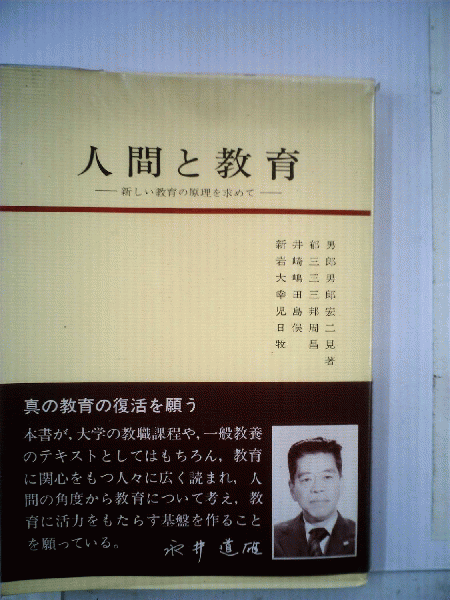 人間と教育
―新しい教育の原理を求めて―
新井郁男
岩崎三郎
大嶋三男
幸田三郎
児島邦宏
日俣周二
牧昌見
著
真の教育の復活を願う
本書が、大学の教職課程や、一般教養
のテキストとしてはもちろん、教育
に関心をもつ人々に広く読まれ、人
間の角度から教育について考え、教
育に活力をもたらす基盤を作ること
を願っている。
永井道雄